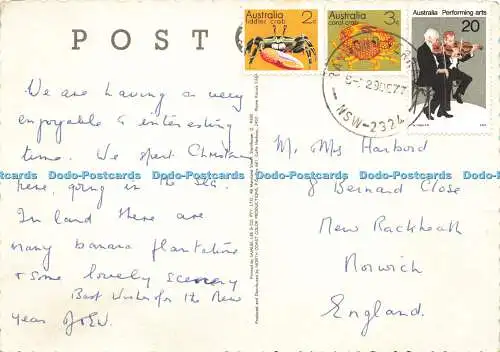 POST
Australia 2c
fiddler crab
Australia 3c
coral crab
Australia Performing arts
20
NSW-2324
We are having a very
enjoyable & interesting
time. We spent Christmas
here, going in the sea.
In land there are
many banana plantations
& some lovely scenery
Best Wishes for the New
year J & EW.
Mr. Mrs Harbord
8 Bernard Close
New Rackheath
Norwich
England.
Dodo-Postcards Dodo-Postcards Dodo-Postcards Dodo-Postcards